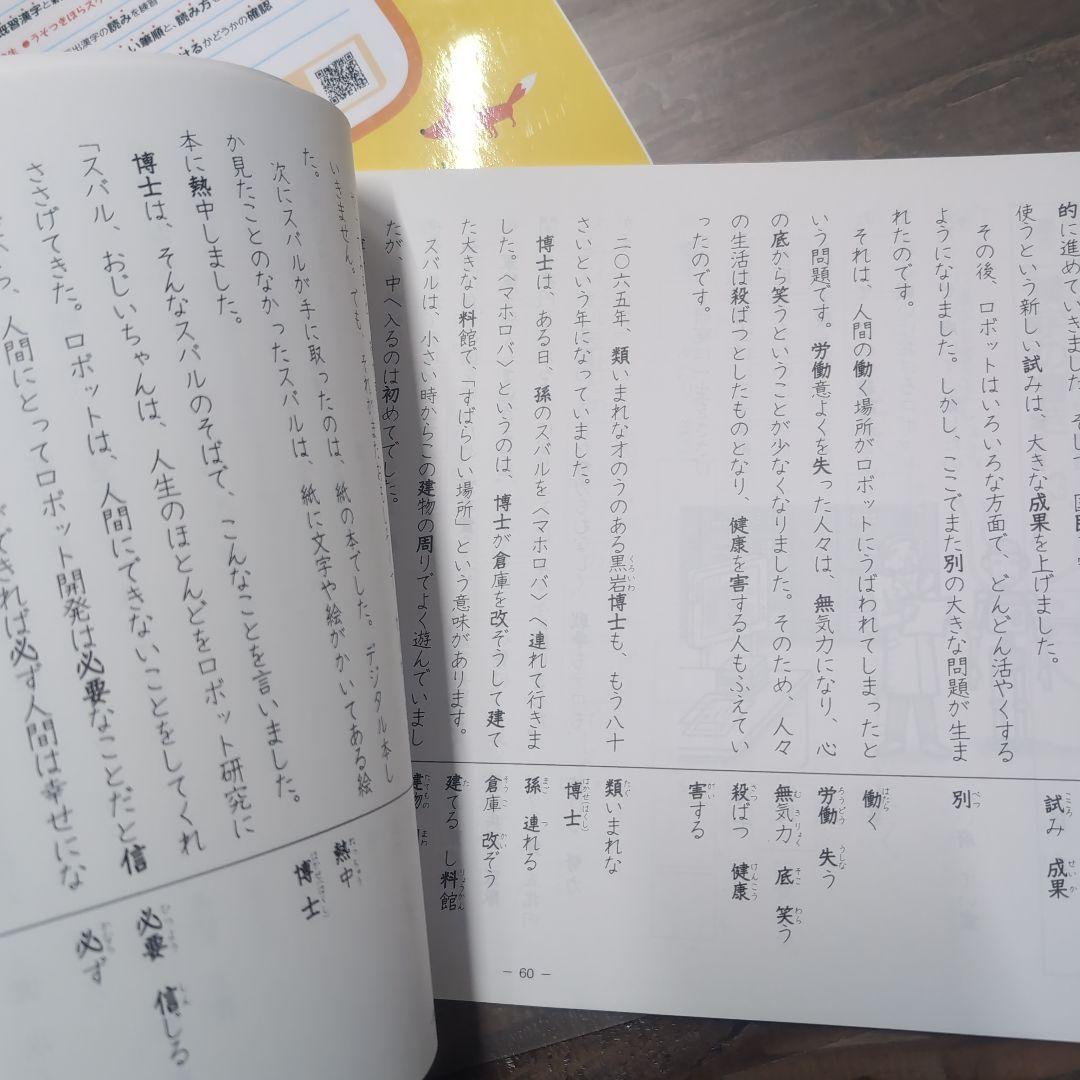 既習漢字と
漢字の読みを練習
い筆順と、読み方を
けるかどうかの確認
●うそつきほらス
的に進めていきました。そして、国
使うという新しい試みは、大きな成果を上げました。
その後、ロボットはいろいろな方面で、どんどん活やくする
ようになりました。しかし、ここでまた別の大きな問題が生ま
れたのです。
それは、人間の働く場所がロボットにうばわれてしまったと
いう問題です。労働意よくを失った人々は、無気力になり、心
の底から笑うということが少なくなりました。そのため、人々
の生活は殺ばつとしたものとなり、健康を害する人もふえてい
ったのです。
二〇六五年、類いまれな才のうのある黒岩博士も、もう八十
くろいわ
さいという年になっていました。
博士は、ある日、孫のスバルを〈マホロバ〉へ連れて行きま
した。〈マホロバ〉というのは、博士が倉庫を改ぞうして建て
た大きなし料館で、「すばらしい場所」という意味があります。
スバルは、小さい時からこの建物の周りでよく遊んでいまし
たが、中へ入るのは初めてでした。
試み 成果
こころ せいか
別
べつ
働く
はたら
労働 失う
ろうどう うしな
無気力 底 笑う
むきりょく そこ わら
殺ばつ 健康
さつ けんこう
害する
がい
類いまれな
たぐ
博士
はかせ(はくし)
孫 連れる
まご つ
倉庫 改ぞう
そうこ かい
建てる し料館
た りょうかん
建物
たてもの
— 60 —
いきません。でも、それが
た。
次にスバルが手に取ったのは、紙の本でした。デジタル本し
か見たことのなかったスバルは、紙に文字や絵がかいてある絵
本に熱中しました。
博士は、そんなスバルのそばで、こんなことを言いました。
「スバル、おじいちゃんは、人生のほとんどをロボット研究に
ささげてきた。ロボットは、人間にできないことをしてくれ
人間にとってロボット開発は必要なことだと信
ができれば必ず人間は幸せにな
熱中
ねっちゅう
博士
はかせ(はくし)
必要 信じる
ひつよう しん
必ず
かなら